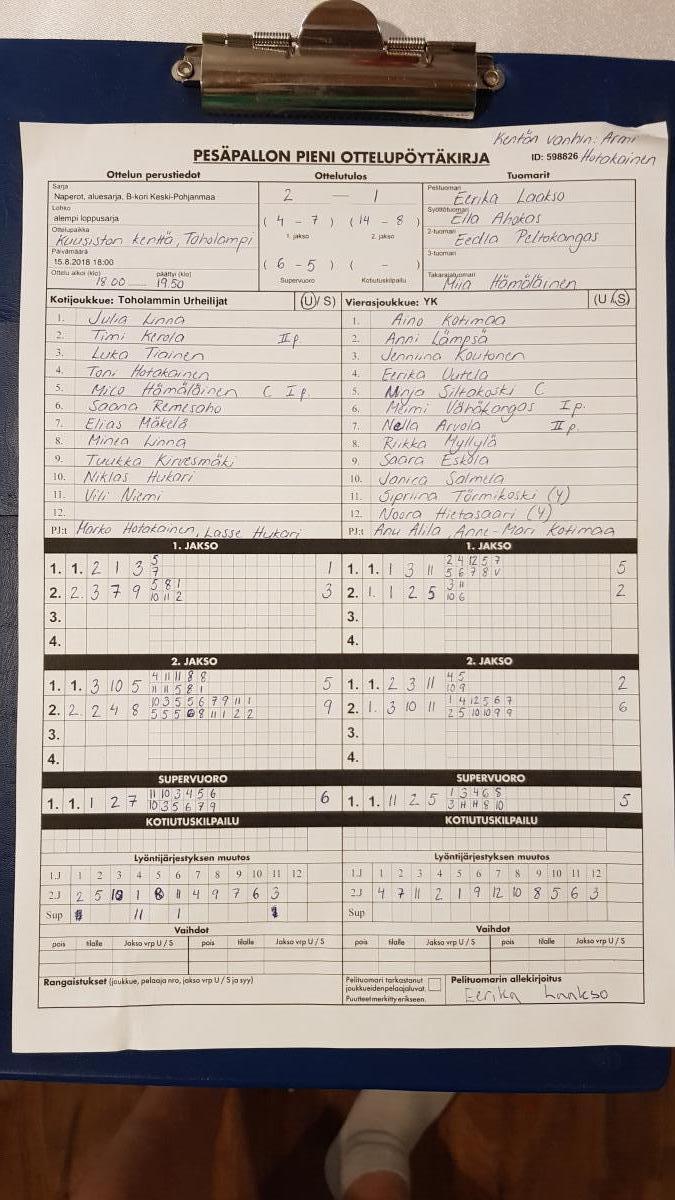 Kentän vanhin: Armi
Hotakainen
PESÄPALLON PIENI OTTELUPÖYTÄKIRJA ID: 598826
Ottelun perustiedot
Sarja
Naperot, aluesarja, B-kori Keski-Pohjanmaa
Lohko
alempi loppusarja
Ottelupaikka
Kuusiston kenttä, Toholampi
Päivämäärä
15.8.2018 18:00
Ottelu alkoi (klo) päättyi (klo)
18.00 19.50
Ottelutulos
2 — 1
( 4 - 7 ) ( 14 - 8 )
1. jakso 2. jakso
( 6 - 5 ) ( - )
Supervuoro Kotiutuskilpailu
Tuomarit
Pelituomari Eerika Laakso
Syöttötuomari Ella Ahokas
2-tuomari Eedla Peltokangas
3-tuomari
Takarajatuomari Miia Hämäläinen
Kotijoukkue: Toholammin Urheilijat (U / S)
1. Julia Linna
2. Timi Kerola II p.
3. Luka Tiainen
4. Toni Hotakainen
5. Mico Hämäläinen C I p.
6. Saana Remesaho
7. Elias Mäkelä
8. Minea Linna
9. Tuukka Kirvesmäki
10. Niklas Hukari
11. Vili Niemi
12.
PJ:t Marko Hotakainen, Lasse Hukari
Vierasjoukkue: YK (U / S)
1. Aino Kotimaa
2. Anni Lämpsä
3. Jenniina Koutonen
4. Eerika Uutela
5. Siltakoski C
6. Meimi Vähäkangas I p.
7. Nella Arvola II p.
8. Riikka Myllylä
9. Saara Eskola
10. Janica Salmela
11. Sipriina Törmikoski (Y)
12. Noora Hietasaari (Y)
PJ:t Anu Alila, Anne-Mari Kotimaa
1. JAKSO
1. 1. 2 1 3 5 1
7
2. 2. 3 7 9 5 8 1 3
10 11 2
3.
4.
1. JAKSO
1. 1. 1 3 11 2 4 12 5 7 5
5 6 7 8 V
2. 1. 1 2 5 3 11 2
10 6
3.
4.
2. JAKSO
1. 1. 3 10 5 4 11 11 8 8 5
11 11 5 8 1
2. 2. 2 4 8 10 3 5 5 6 7 9 11 1 9
5 5 5 6 8 11 1 2 2
3.
4.
2. JAKSO
1. 1. 2 3 11 4 5 2
10 9
2. 1. 3 10 11 1 4 12 5 6 7 6
2 5 10 10 9 9
3.
4.
SUPERVUORO
1. 1. 1 2 7 11 10 3 4 5 6 6
10 3 5 6 7 9
SUPERVUORO
1. 1. 11 2 5 1 3 4 6 8 5
3 8 10
KOTIUTUSKILPAILU
KOTIUTUSKILPAILU
Lyöntijärjestyksen muutos
1.J 1 2 3 4 5 6 7 8 9 10 11 12
2.J 2 5 10 1 8 11 4 9 7 6 3
Sup 11 1
Lyöntijärjestyksen muutos
1.J 1 2 3 4 5 6 7 8 9 10 11 12
2.J 4 7 11 2 1 9 12 10 8 5 6 3
Sup
Vaihdot
pois tilalle Jakso vrp U / S pois tilalle Jakso vrp U / S
Vaihdot
pois tilalle Jakso vrp U / S pois tilalle Jakso vrp U / S
Rangaistukset (joukkue, pelaaja nro, jakso vrp U / S ja syy)
Pelituomari tarkastanut
joukkueidenpelaajaluvat.
Puutteet merkitty erikseen.
Pelituomarin allekirjoitus
Eerika Laakso